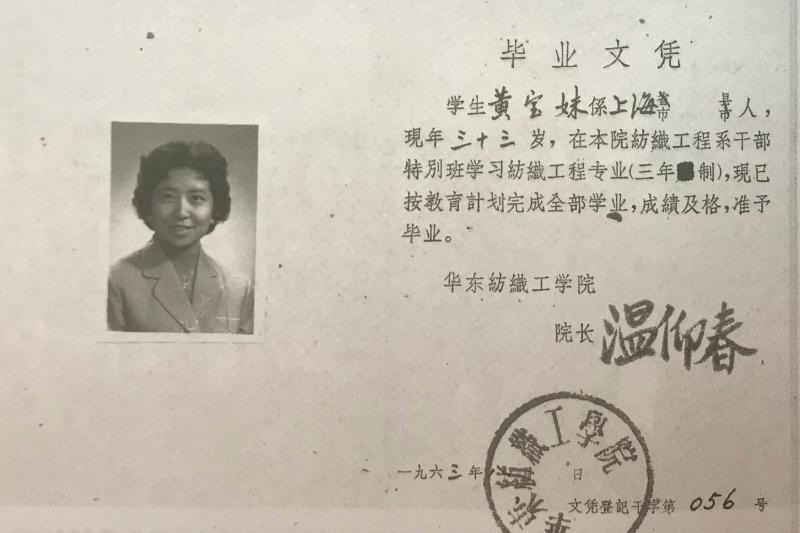 毕业文凭
学生黄宝妹係上海省市 县市人，
現年三十三岁，在本院紡織工程系干部
特別班学习紡織工程专业(三年制)，現已
按教育計划完成全部学业，成績及格，准予
毕业。
华东紡織工学院
院长 温仰春
华东紡織工學院
一九六三年 日
文凭登記干字第 056 号